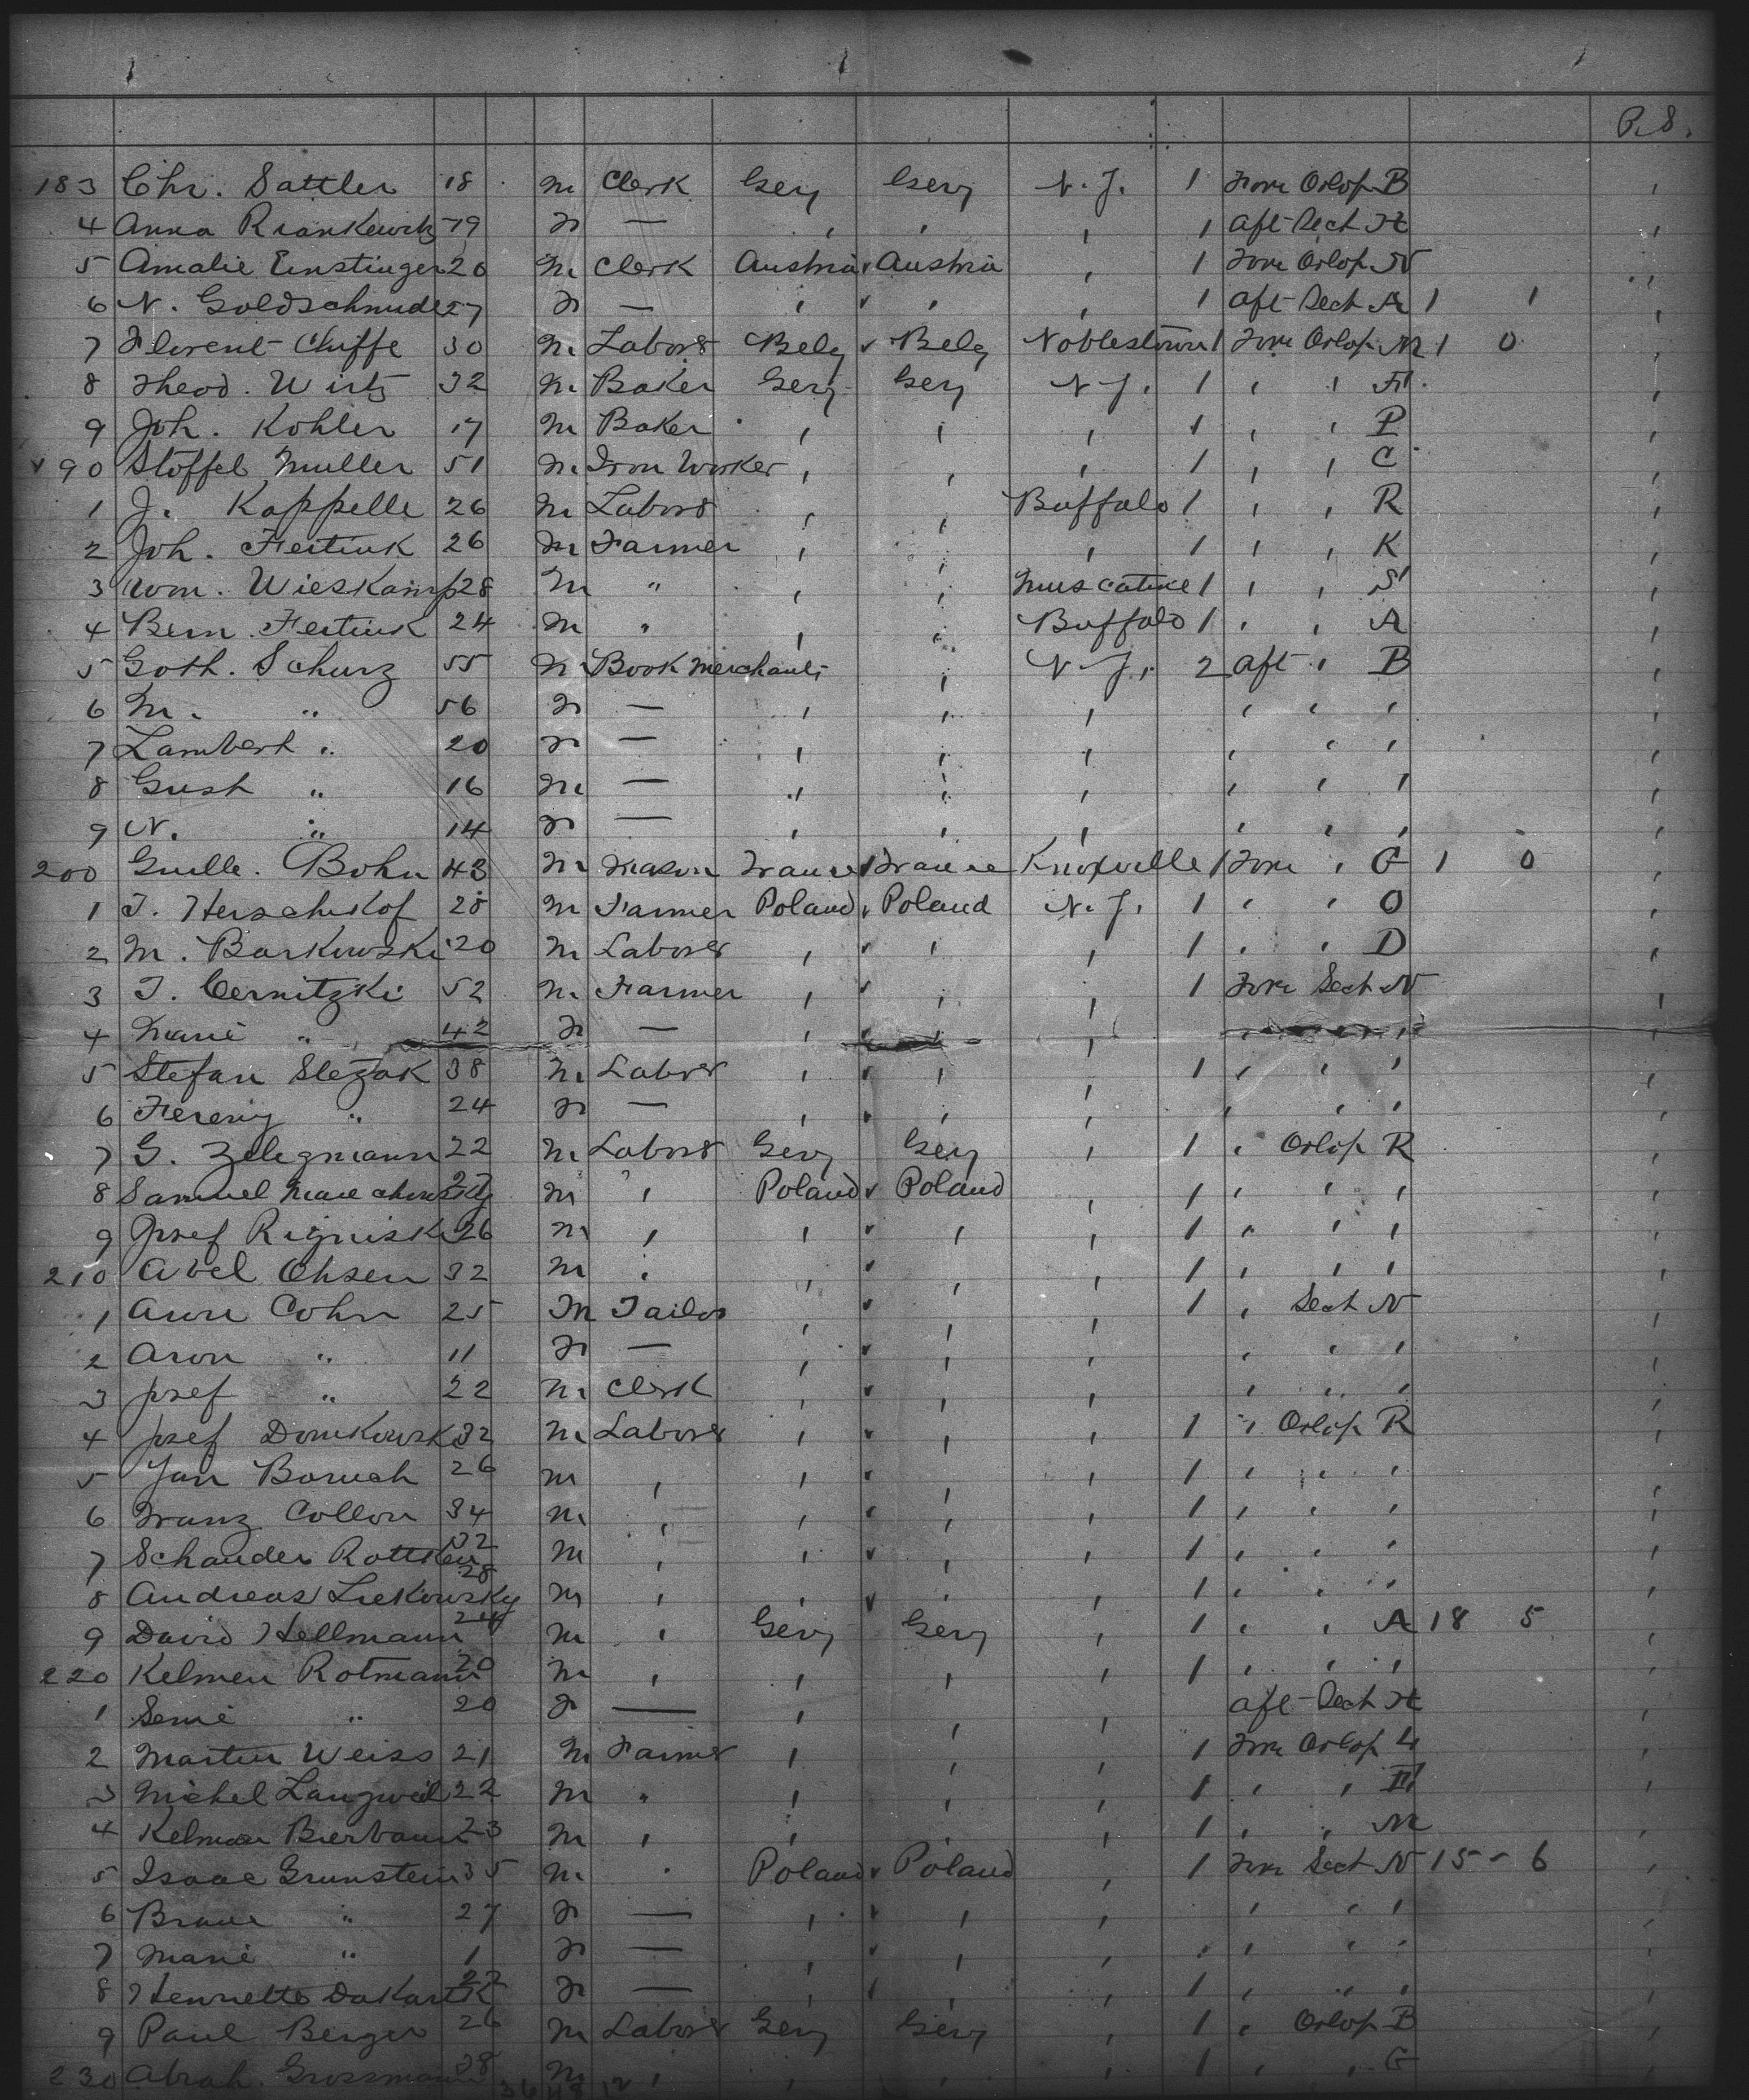 P. S.
183 Chr. Sattler 18 m Clerk Gery Gery N. J. 1 Fore Orlop B ,
4 Anna 19 F — , , , 1 aft Deck H ,
5 Amalie 20 m Clerk Austria Austria , 1 Fore Orlop N ,
6 N. 27 F — , , , 1 aft Deck A 1 1 ,
7 Florent 30 m Labors Belg Belg Noblestown 1 Fore Orlop M 1 0 ,
8 Theod. Wirtz 32 m Baker Gery Gery N J. 1 , , F ,
9 Joh. Kohler 17 m Baker , , , 1 , , P ,
90 Stoffel Muller 51 m Iron Worker , , , 1 , , C ,
1 J. Kappelle 26 m Labors , , Buffalo 1 , , R ,
2 Joh. 26 m Farmer , , , 1 , , K ,
3 Wm. Wieskamp 28 m " , , Muscatine 1 , , S ,
4 Bern. 24 m " , , Buffalo 1 , , A ,
5 Goth. Schurz 55 m Book Merchant , N. J. 2 aft , B ,
6 M. " 56 F — , , , , , , ,
7 Lambert " 20 F — , , , , , , ,
8 Gust " 16 m — , , , , , , ,
9 N. " 14 F — , , , , , , ,
200 Guille. Bohn 43 m Mason France France Knoxville 1 Fore , G 1 0 ,
1 J. Herschkof 28 m Farmer Poland Poland N. J. 1 , , O ,
2 M. Barkowski 20 m Laborer , , , 1 , , D ,
3 J. Cernitzki 52 m Farmer , , , 1 Fore Deck N ,
4 Marie " 42 F — , , , , , , ,
5 Stefan Slezak 38 m Labror , , , 1 , , , ,
6 " 24 F — , , , , , , ,
7 G. 22 m Labors Gery Gery , 1 , Orlop R ,
8 Samuel 27 m , Poland Poland , 1 , , , ,
9 Josef 26 m , , , , 1 , , , ,
210 Abel Ohsen 32 m , , , , 1 , , , ,
1 Cohn 25 M Tailor , , , 1 , Deck N ,
2 Aron " 11 F — , , , , , , ,
3 Josef " 22 m Clerk , , , , , , ,
4 Josef Domkowski 32 m Laborer , , , 1 , Orlop R ,
5 Jan Boruch 26 m , , , , 1 , , , ,
6 Franz Collon 34 m , , , , 1 , , , ,
7 Schauder 32 m , , , , 1 , , , ,
8 Andreas 28 m , , , , 1 , , , ,
9 David Hellmann 24 m , Gery Gery , 1 , , A 18 5 ,
220 Kelmen Rotmann 20 m , , , , 1 , , , ,
1 " 20 F — , , , aft Deck H ,
2 Martin Weiss 21 m Farmer , , , 1 Fore Orlop L ,
3 Michel Langweil 22 m " , , , 1 , , ,
4 Kelman Bierbaum 23 m , , , , 1 , , M ,
5 Isaac Grunstein 35 m , Poland Poland , 1 Fore Deck N 15 - 6 ,
6 " 27 F — , , , , , , ,
7 Marie " 1 F — , , , , , , ,
8 Henriette 22 F — , , , 1 , , , ,
9 Paul Berger 26 m Laborer Gery Gery , 1 , Orlop B ,
230 Abrah. Grossmann 28 m , , , , 1 , , G ,